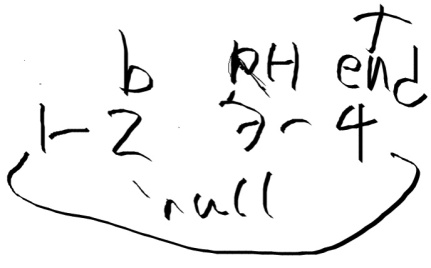 b RH end
1-2 3-4
null